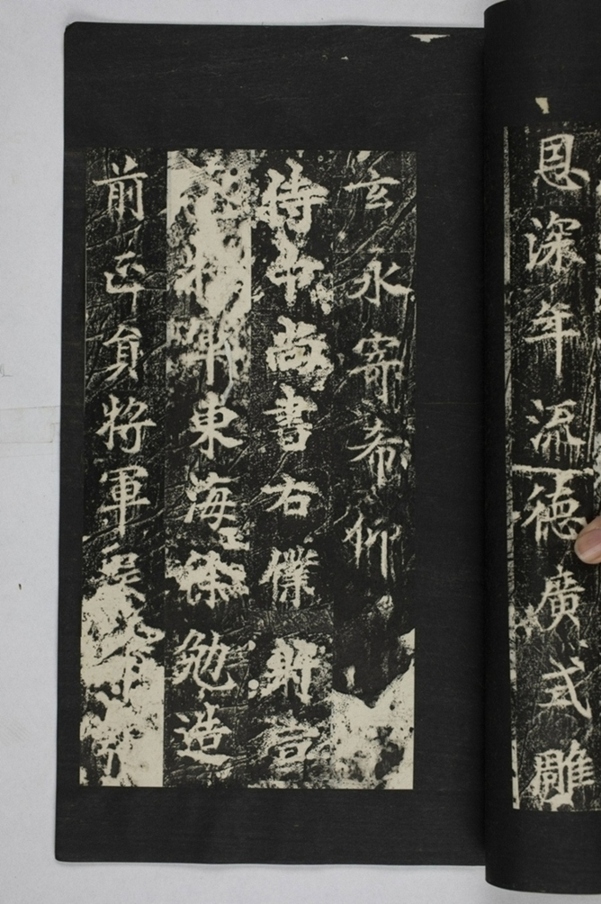 恩深年流徳廣式雕
玄永寄希仰
侍中尚書右僕射宣
將軍東海徐勉造
前正員將軍吳